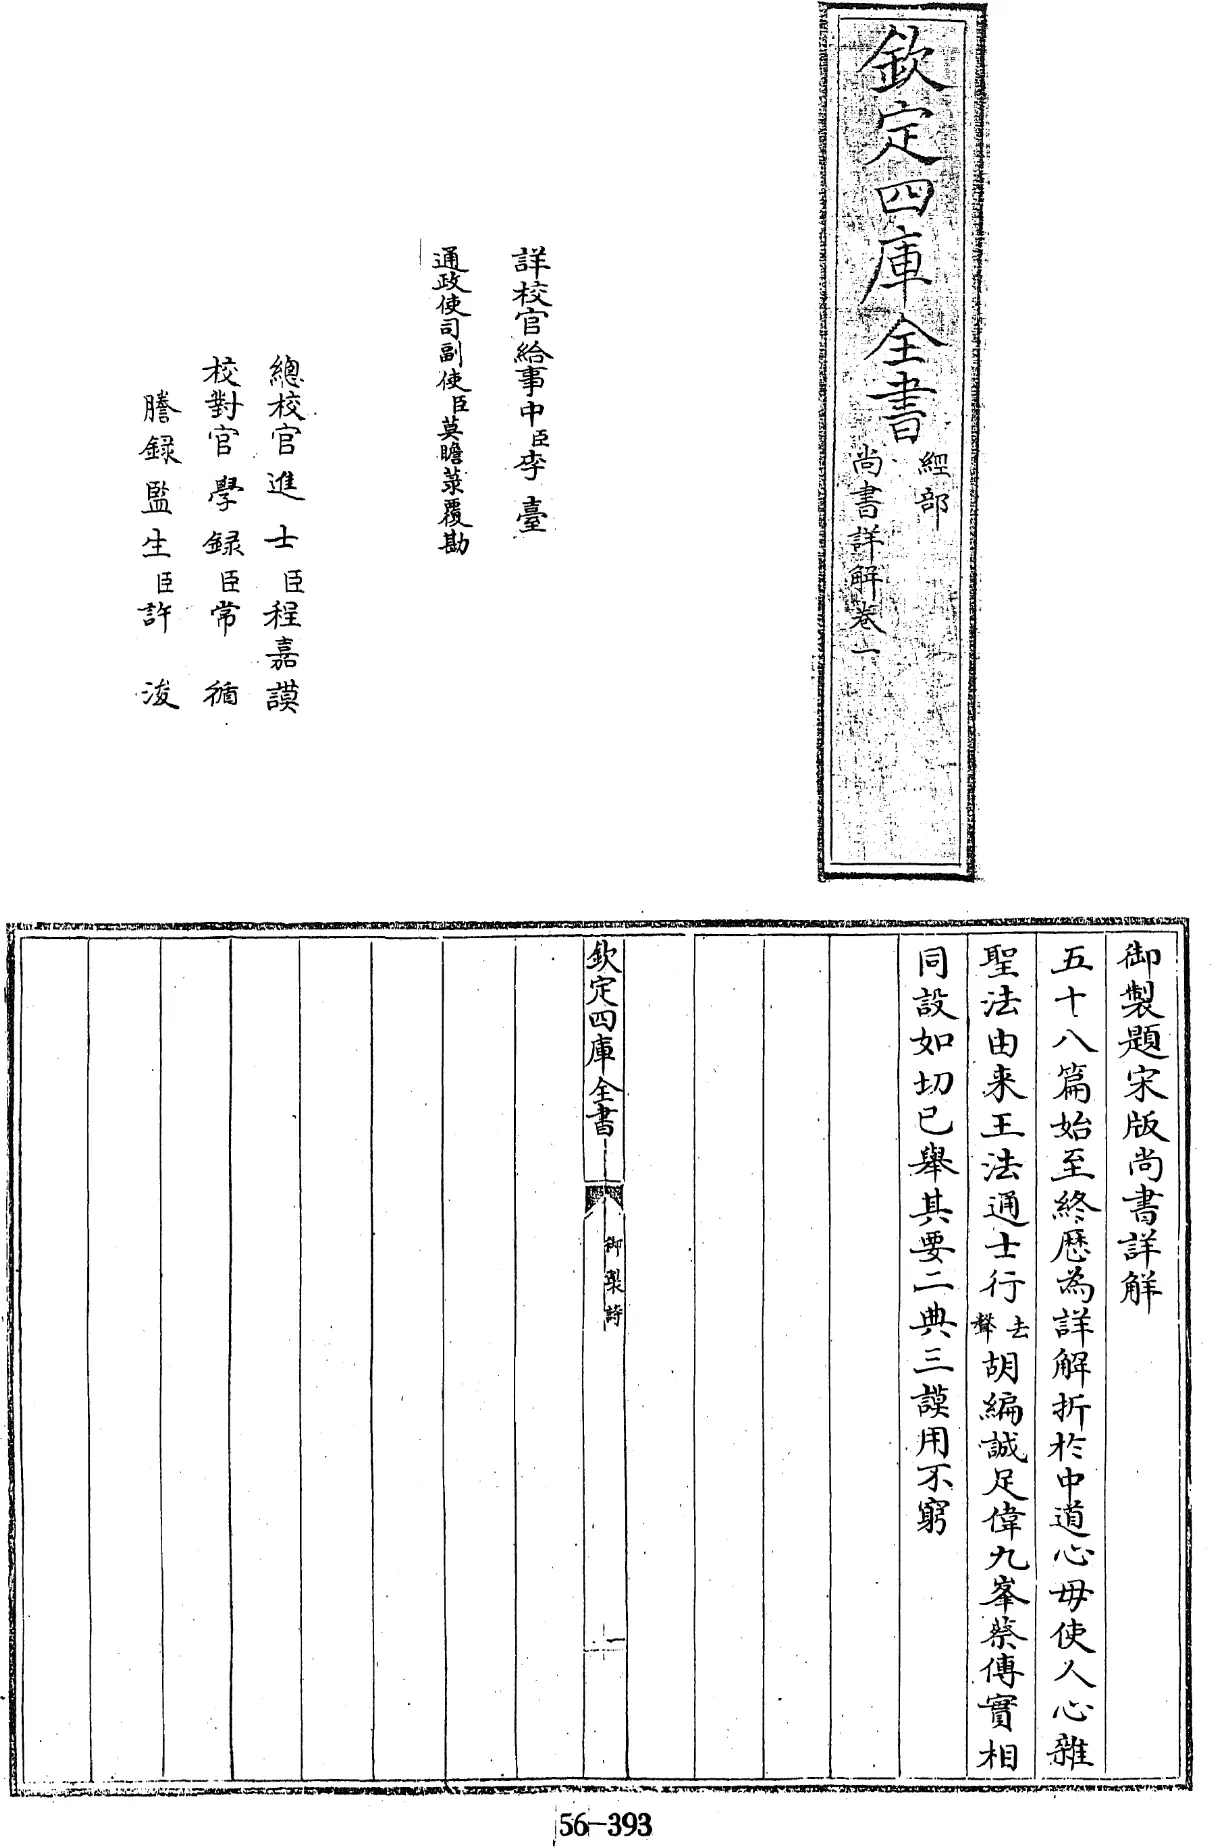 欽定四庫全書
經部
尚書詳解卷一
詳校官給事中臣李臺
通政使司副使臣莫瞻菉覆勘
總校官進士臣程嘉謨
校對官學録臣常循
謄録監生臣許浚
御製題宋版尚書詳解
五十八篇始至終歷為詳解折於中道心毋使人心雜
聖法由来王法通士行去聲胡編誠足偉九峯蔡傳實相
同設如切已舉其要二典三謨用不窮
欽定四庫全書
御製詩
一
56-393